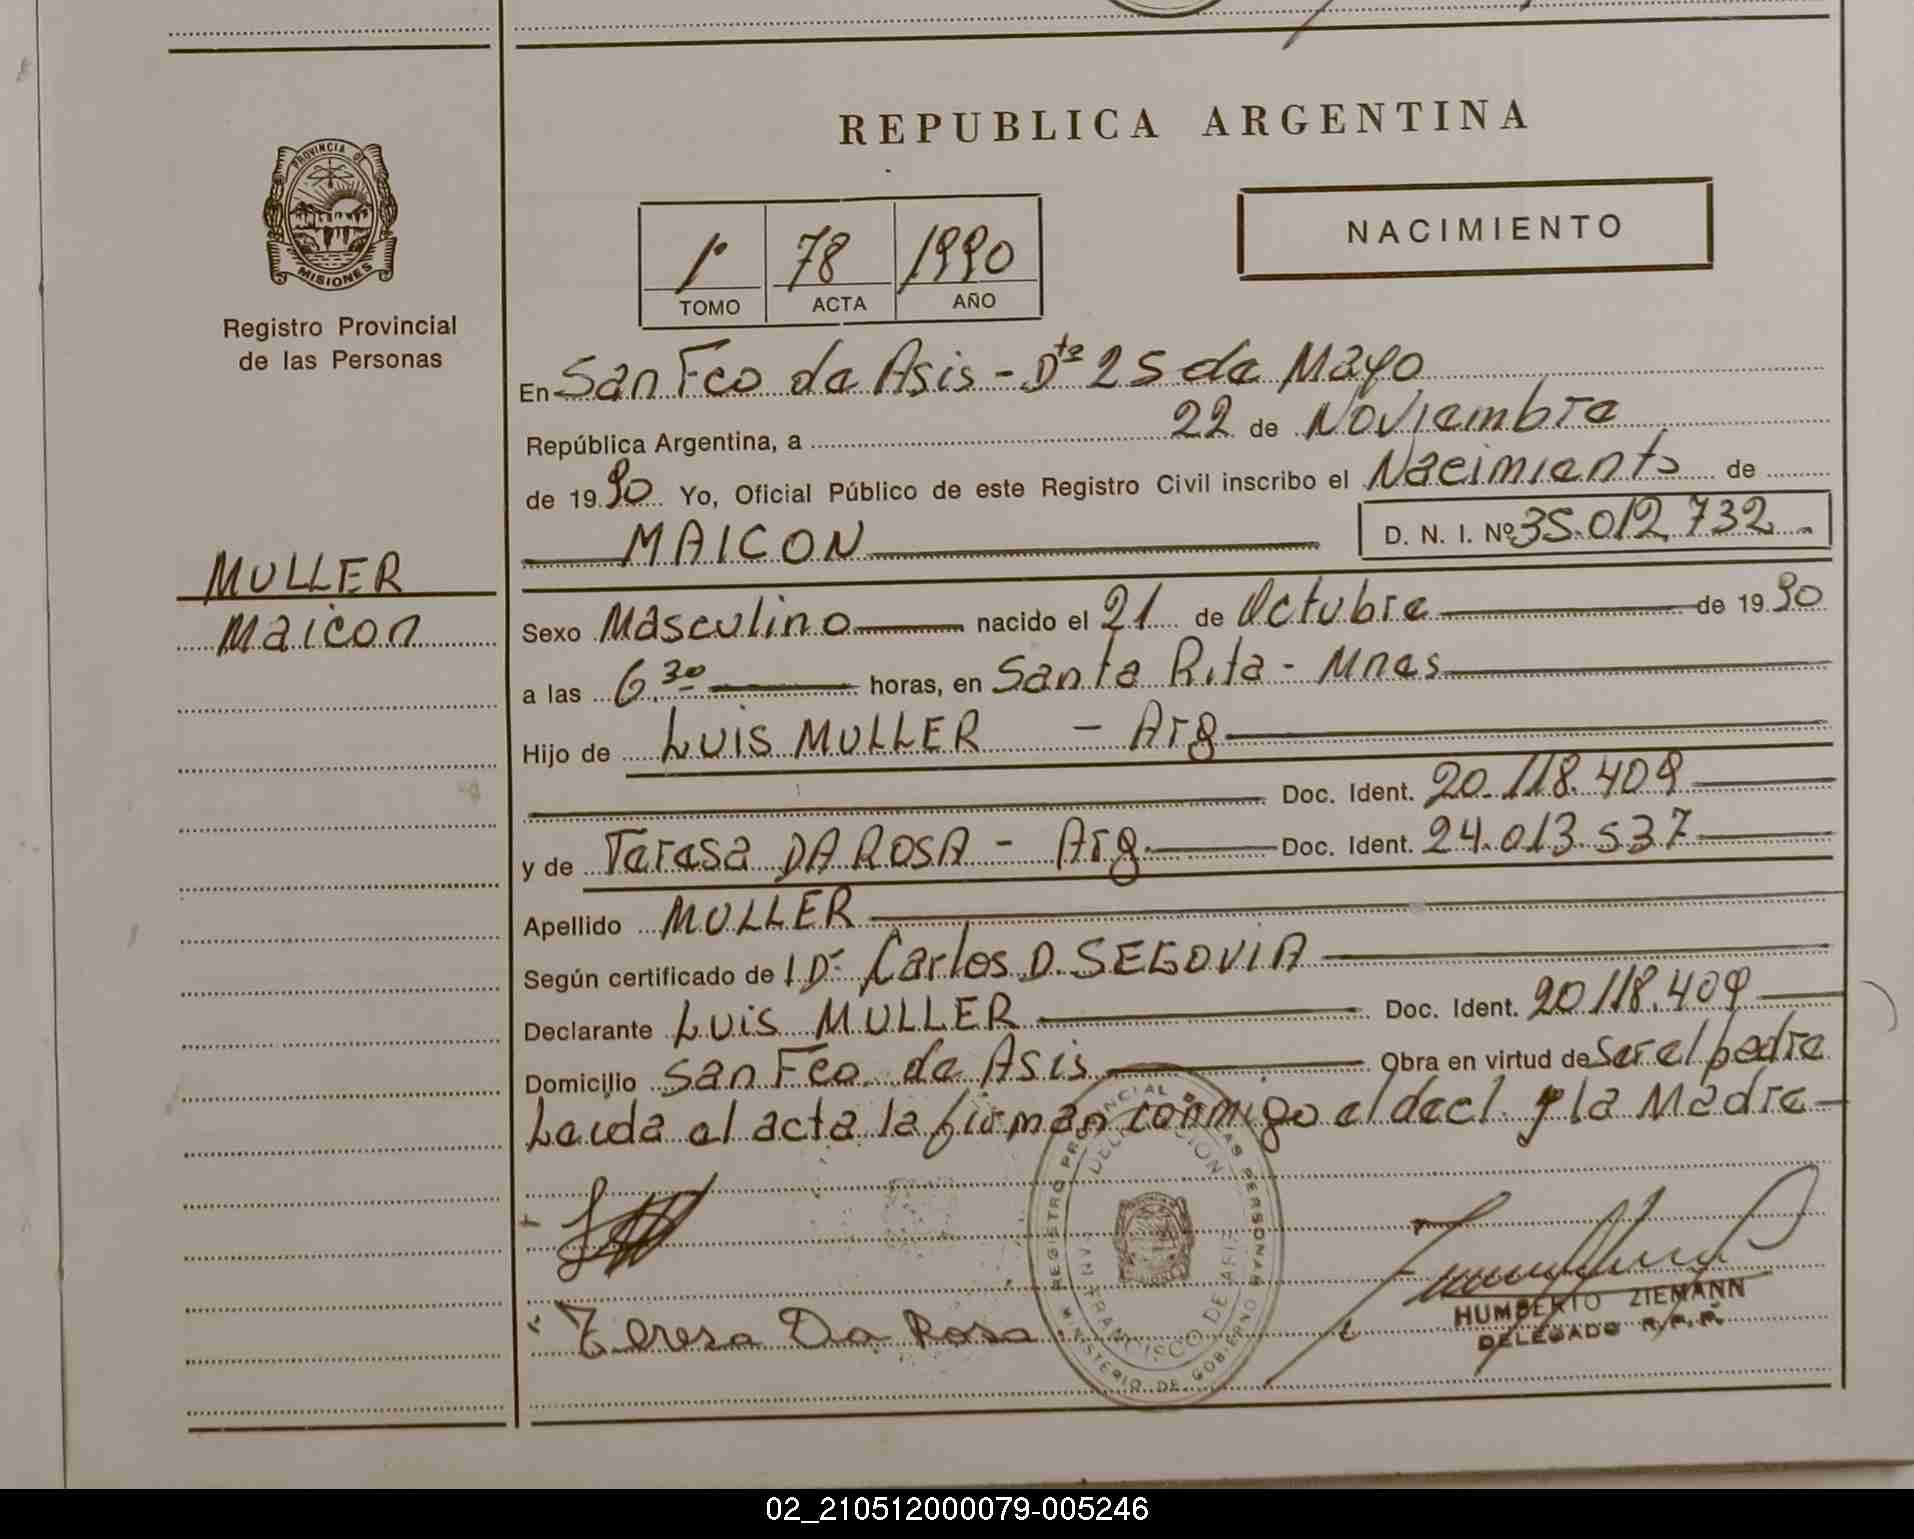 REPUBLICA ARGENTINA
PROVINCIA DE
MISIONES
Registro Provincial
de las Personas
1º 78 1990
TOMO ACTA AÑO
NACIMIENTO
En San Fco de Asis - Dto 25 de Mayo
República Argentina, a 22 de Noviembre
de 1990 Yo, Oficial Público de este Registro Civil inscribo el Nacimiento de
MAICON D. N. I. Nº 35.012.732
MULLER
Maicon
Sexo Masculino nacido el 21 de Octubre de 1990
a las 6,30 horas, en Santa Rita - Mnes
Hijo de Luis MULLER - Arg
Doc. Ident. 20.118.409
y de Teresa DA ROSA - Arg Doc. Ident. 24.013.537
Apellido MULLER
Según certificado de Dr Carlos D. SEGOVIA
Declarante Luis MULLER Doc. Ident. 20.118.409
Domicilio San Fco. de Asis Obra en virtud de Ser el padre
Leida el acta la firman conmigo el decl. y la Madre
REGISTRO PROVINCIAL DE LAS PERSONAS
MINISTERIO DE GOBIERNO
FRANCISCO DE
Teresa Da Rosa
HUMBERTO ZIEMANN
DELEGADO R.P.P.
02_210512000079-005246